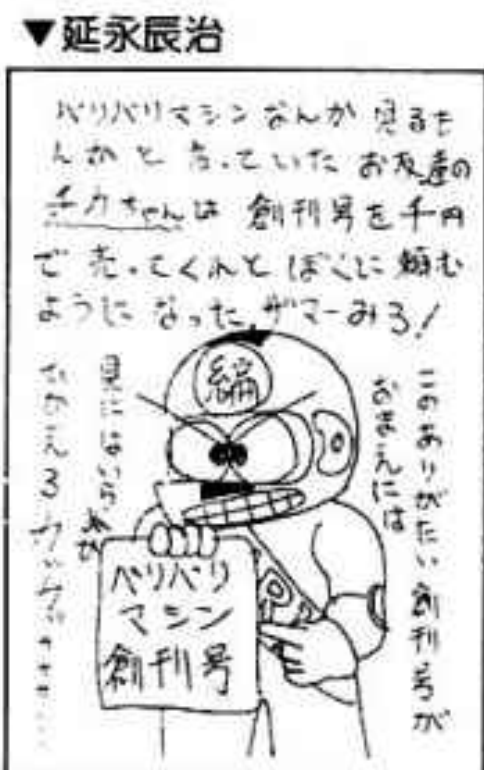 ▼延永辰治
バリバリマシンなんか見るも
んかと言っていたお友達の
チカちゃんは創刊号を千円
で売ってくれとぼくに頼む
ようになったザマーみろ!
編
このありがたい創刊号が
おまえには
見
バリバリ
マシン
創刊号